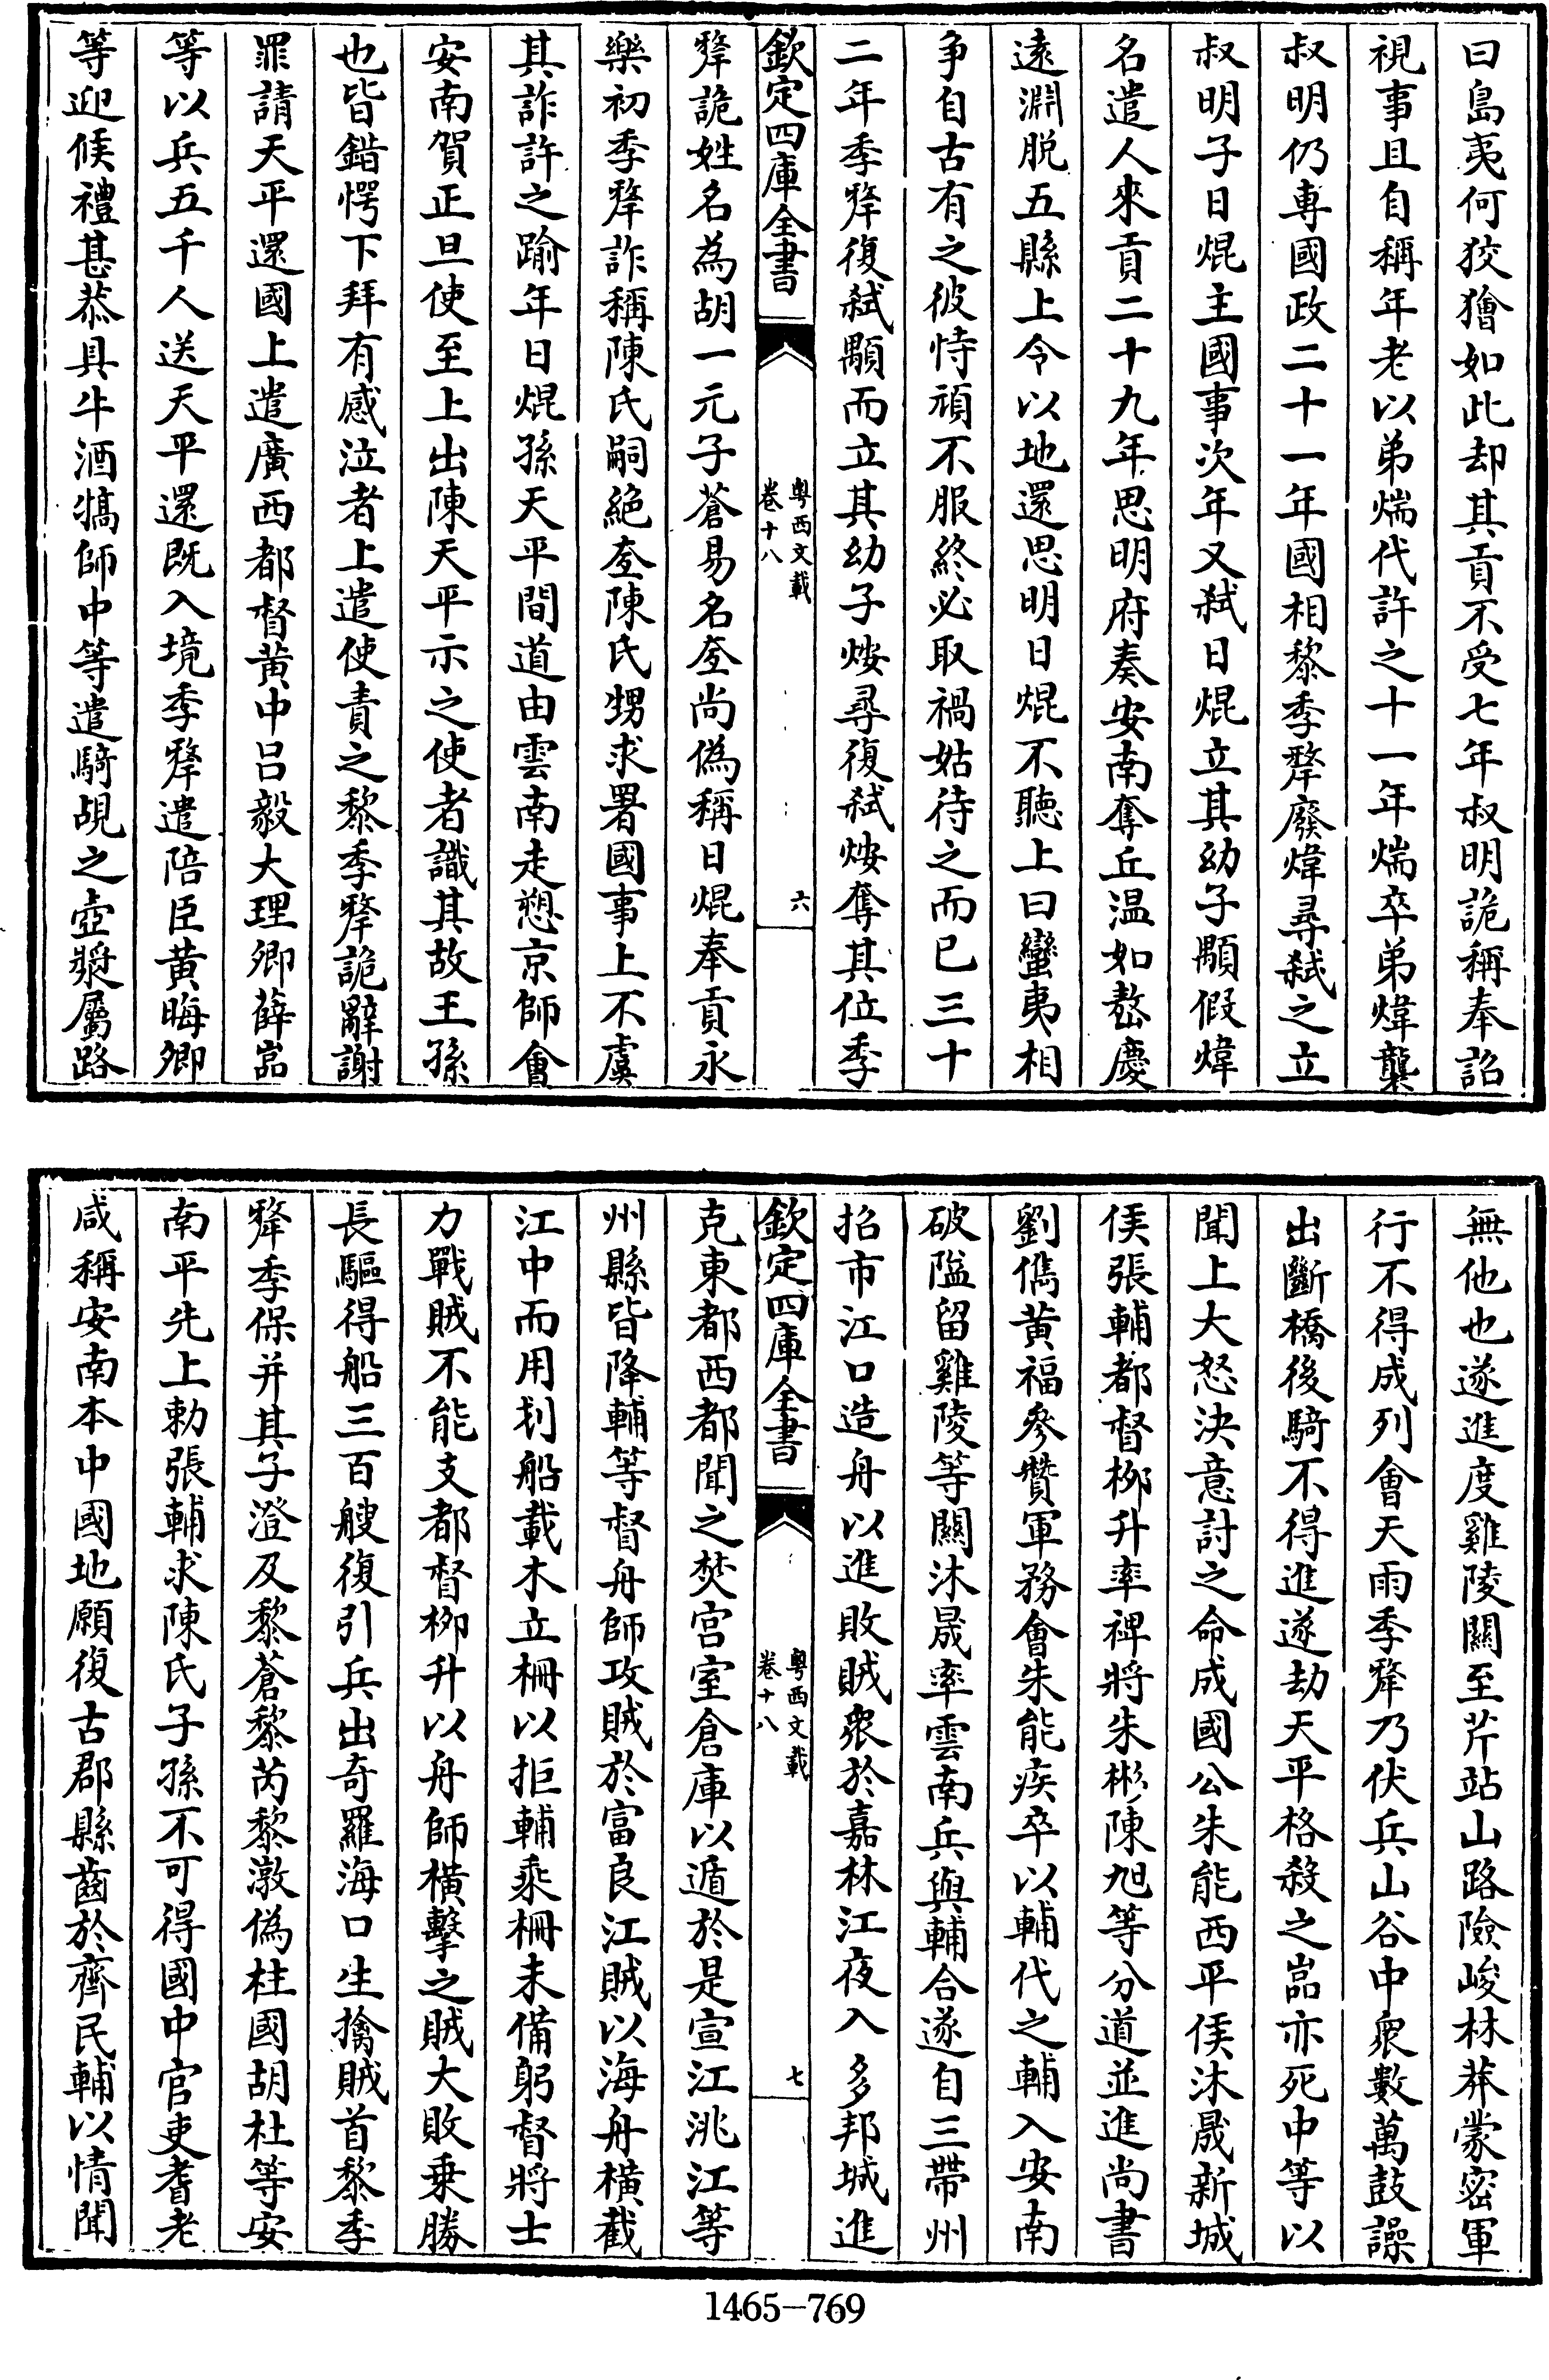 曰島夷何狡獪如此却其貢不受七年叔明詭稱奉詔
視事且自稱年老以弟煓代許之十一年煓卒弟煒襲
叔明仍專國政二十一年國相黎季犛廢煒尋弑之立
叔明子日焜主國事次年又弑日焜立其幼子顒假煒
名遣人來貢二十九年思明府奏安南奪丘温如嶅慶
遠淵脱五縣上令以地還思明日焜不聽上曰蠻夷相
争自古有之彼恃頑不服終必取禍姑待之而已三十
二年季犛復弑顒而立其幼子㶼尋復弑㶼奪其位季
欽定四庫全書
粤西文載
卷十八
六
犛詭姓名為胡一元子蒼易名奃尚偽稱日焜奉貢永
樂初季犛詐稱陳氏嗣絶奃陳氏甥求署國事上不虞
其詐許之踰年日焜孫天平間道由雲南走愬京師會
安南賀正旦使至上出陳天平示之使者識其故王孫
也皆錯愕下拜有感泣者上遣使責之黎季犛詭辭謝
罪請天平還國上遣廣西都督黄中吕毅大理卿薛嵓
等以兵五千人送天平還既入境季犛遣陪臣黄晦卿
等迎候禮甚恭具牛酒犒師中等遣騎覘之壺漿屬路
無他也遂進度雞陵關至芹站山路險峻林莽蒙密軍
行不得成列會天雨季犛乃伏兵山谷中衆數萬鼓譟
出斷橋後騎不得進遂劫天平格殺之嵓亦死中等以
聞上大怒決意討之命成國公朱能西平侯沐晟新城
侯張輔都督柳升率裨將朱彬陳旭等分道並進尚書
劉儁黄福參贊軍務會朱能疾卒以輔代之輔入安南
破隘留雞陵等關沐晟率雲南兵與輔合遂自三帶州
招市江口造舟以進敗賊衆於嘉林江夜入多邦城進
欽定四庫全書
粤西文載
卷十八
七
克東都西都聞之焚宫室倉庫以遁於是宣江洮江等
州縣皆降輔等督舟師攻賊於富良江賊以海舟横截
江中而用划船載木立柵以拒輔乘柵未備躬督將士
力戰賊不能支都督柳升以舟師横擊之賊大敗乗勝
長驅得船三百艘復引兵出奇羅海口生擒賊首黎季
犛季保并其子澄及黎蒼黎芮黎潡偽柱國胡杜等安
南平先上勅張輔求陳氏子孫不可得國中官吏耆老
咸稱安南本中國地願復古郡縣齒於齊民輔以情聞
1465-769